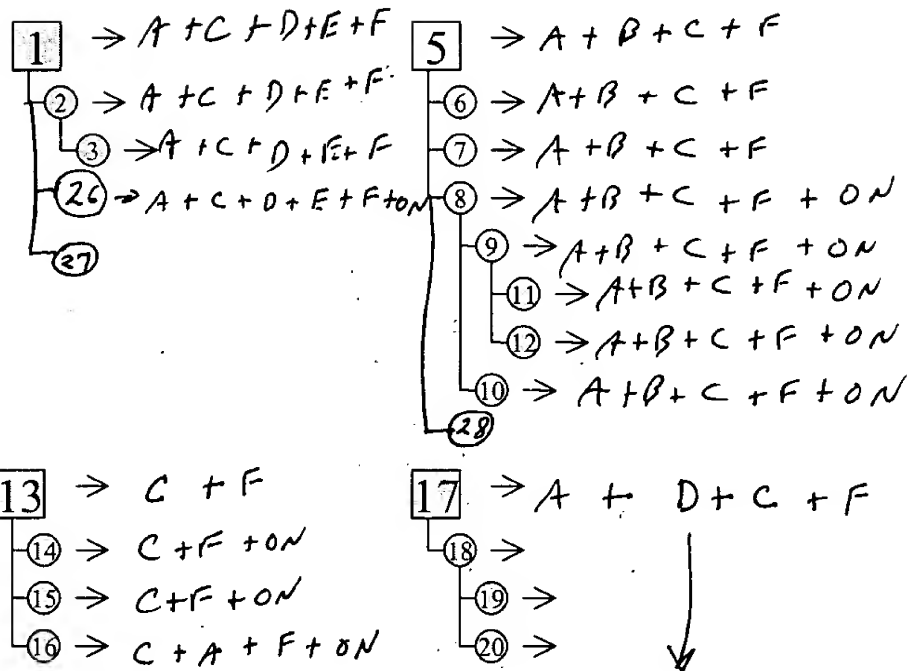 1 → A + C + D + E + F
2 → A + C + D + E + F
3 → A + C + D + E + F
26 → A + C + D + E + F + ON
27
5 → A + B + C + F
6 → A + B + C + F
7 → A + B + C + F
8 → A + B + C + F + ON
9 → A + B + C + F + ON
11 → A + B + C + F + ON
12 → A + B + C + F + ON
10 → A + B + C + F + ON
28
13 → C + F
14 → C + F + ON
15 → C + F + ON
16 → C + A + F + ON
17 → A + D + C + F
18 →
19 →
20 →